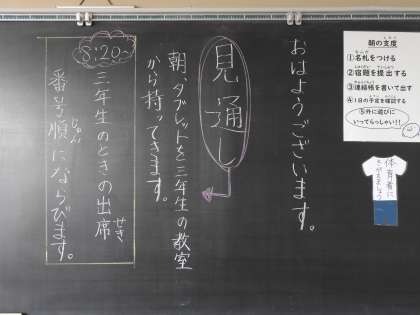 おはようございます。
見通し
朝、タブレットを三年生の教室
から持ってきます。
8:20~
三年生のときの出席
せき
番号順にならびます。
じゅん
朝の支度
①名札をつける
②宿題を提出する
③連絡帳を書いて出す
④1日の予定を確認する
⑤外に遊びに
いってらっしゃい!!
体育着に
きがえましょう